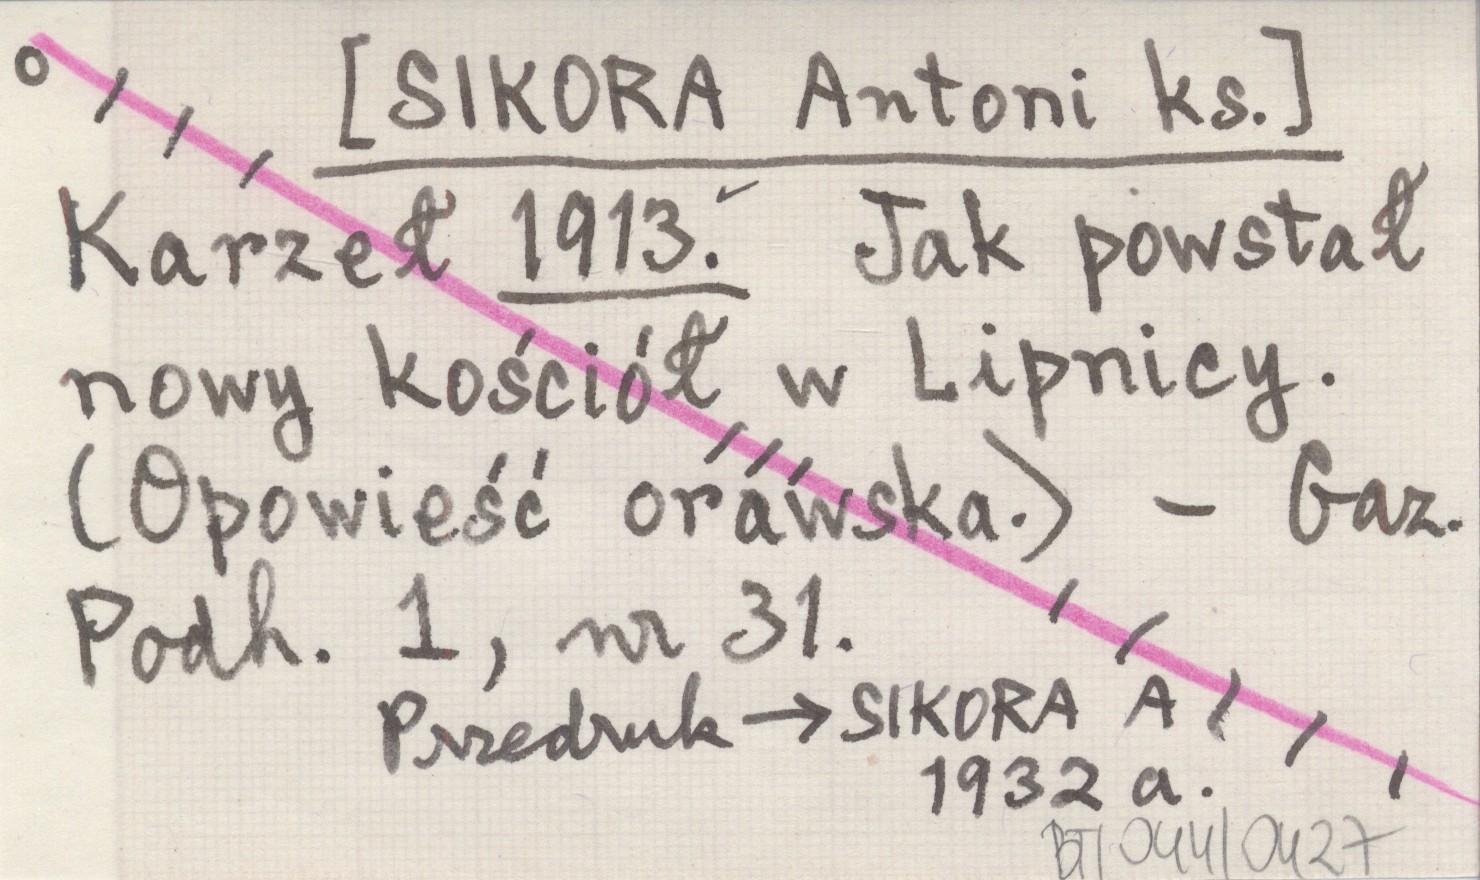 [SIKORA Antoni ks.]
Karzeł 1913. Jak powstał
nowy kościół w Lipnicy.
(Opowieść orawska.) - Gaz.
Podh. 1, nr 31.
Przedruk → SIKORA A
1932 a.
BT/044/0427